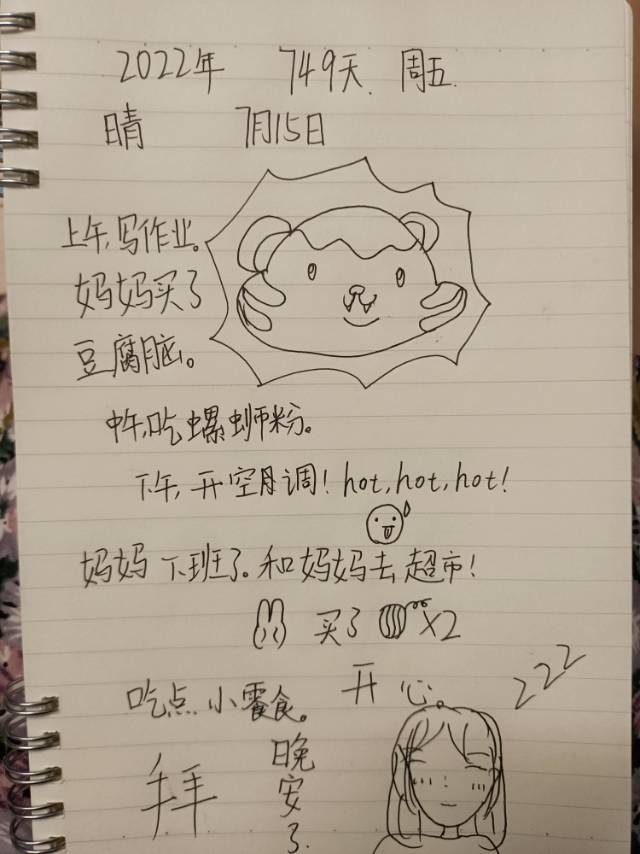 2022年 749天. 周五.
晴 7月15日
上午,写作业。
妈妈买了
豆腐脑。
中午,吃螺蛳粉。
下午,开空调!hot,hot,hot!
妈妈下班了。和妈妈去超市!
买了 x2
吃点小零食。开心。
zzz
拜拜
晚安了.